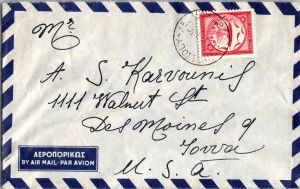 Mr
A. S. Karvounis
1111 Walnut St
Des Moines 9
Iowa
U. S. A.
ΑΕΡΟΠΟΡΙΚΩΣ
BY AIR MAIL - PAR AVION